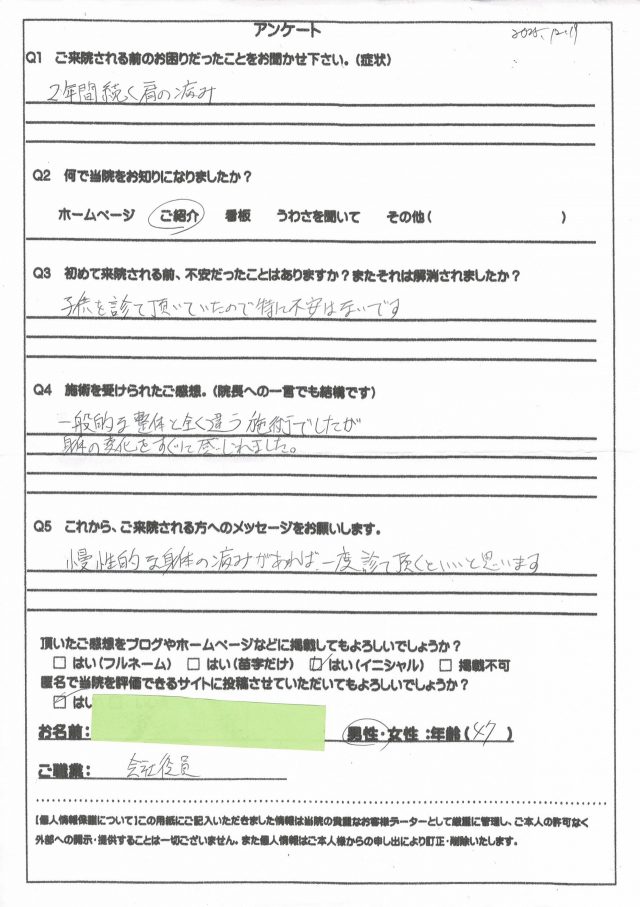 アンケート
2025.12.19
Q1 ご来院される前のお困りだったことをお聞かせ下さい。(症状)
2年間続く肩の痛み
Q2 何で当院をお知りになりましたか?
ホームページ ご紹介 看板 うわさを聞いて その他( )
Q3 初めて来院される前、不安だったことはありますか?またそれは解消されましたか?
子供を診て頂いていたので特に不安はないです
Q4 施術を受けられたご感想。(院長への一言でも結構です)
一般的な整体と全く違う施術でしたが
身体の変化をすぐに感じれました。
Q5 これから、ご来院される方へのメッセージをお願いします。
慢性的な身体の痛みがあれば、一度診て頂くといいと思います
頂いたご感想をブログやホームページなどに掲載してもよろしいでしょうか?
□ はい(フルネーム) □ はい(苗字だけ) ☑ はい(イニシャル) □ 掲載不可
匿名で当院を評価できるサイトに投稿させていただいてもよろしいでしょうか?
☑ はい
お名前: 男性・女性 :年齢(47)
ご職業: 会社役員
【個人情報保護について】この用紙にご記入いただきました情報は当院の貴重なお客様データーとして厳重に管理し、ご本人の許可なく
外部への開示・提供することは一切ございません。また個人情報はご本人様からの申し出により訂正・削除いたします。